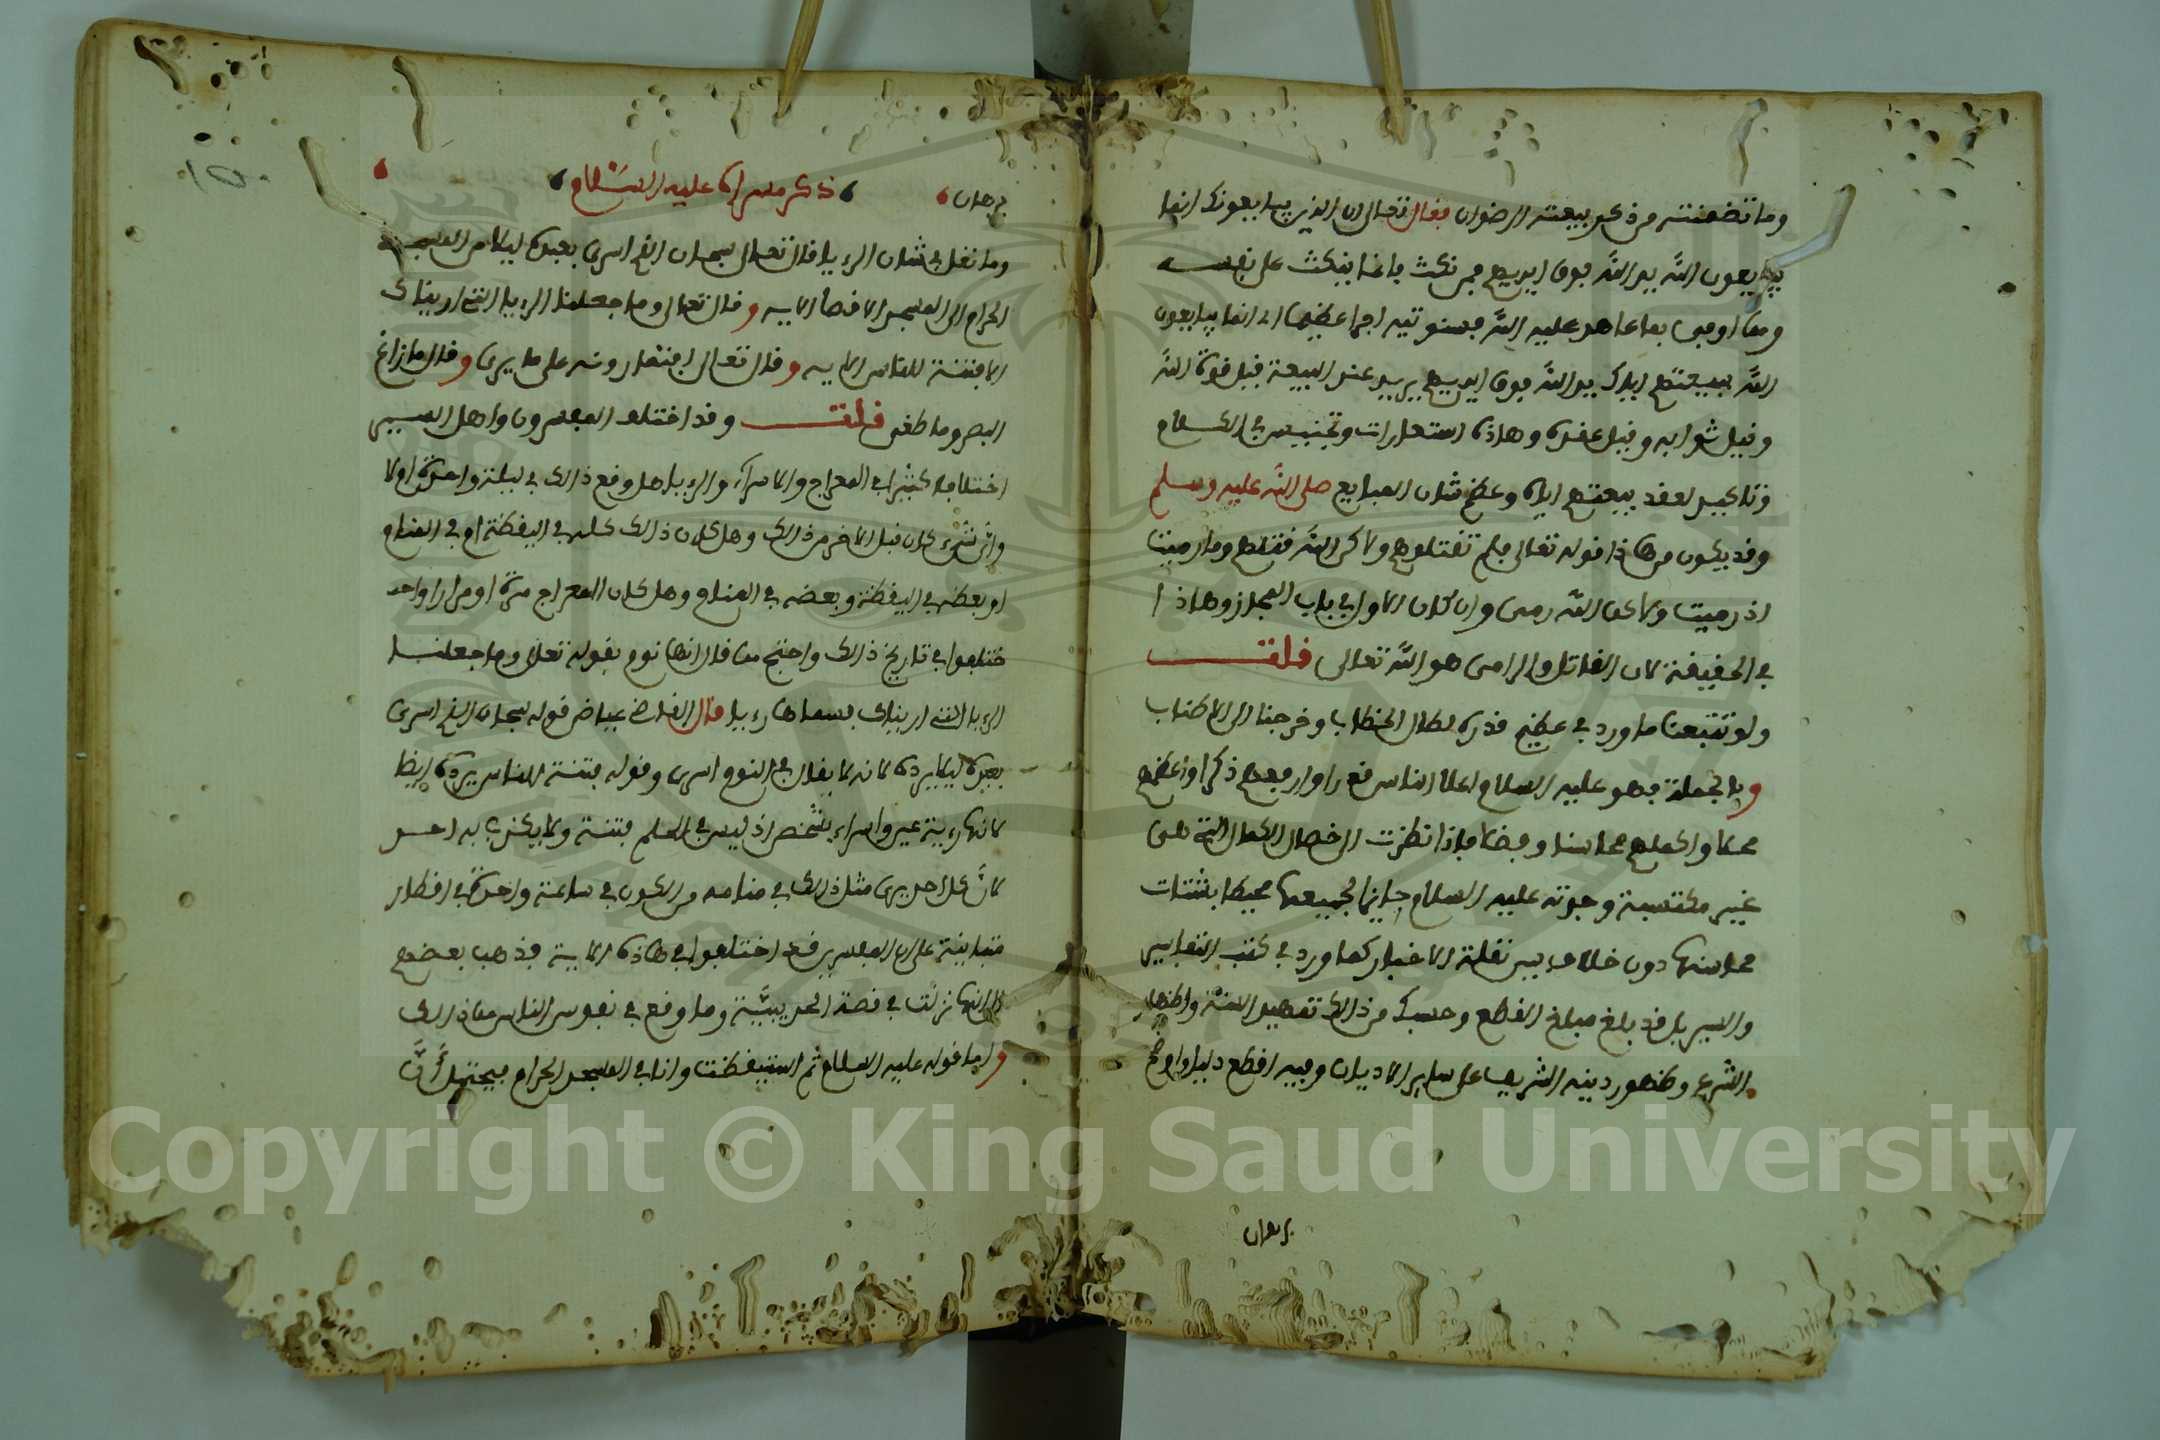 وما تضمنته من ذكر بيعة الرضوان فقال تعالى ان الذين يبايعونك انما
يبايعون الله يد الله فوق ايديهم فمن نكث فانما ينكث على نفسه
ومن اوفى بما عاهد عليه الله فسنوتيه اجرا عظيما اي انما يبايعون
الله ببيعتهم اياك يد الله فوق ايديهم يريد عند البيعة قيل قوة الله
وقيل ثوابه وقيل عقده وهاذه استعارات وتجنيس في الكلام
وتاكيد لعقد بيعتهم اياه وعظم شان المبايع صلى الله عليه وسلم
وقد يكون من هاذا قوله تعالى فلم تقتلوهم ولاكن الله قتلهم وما رميت
اذ رميت ولاكن الله رمى وان كان الاول في باب المجاز وهاذا
في الحقيقة لان القاتل والرامى هو الله تعالى قلت
ولو تتبعنا ما ورد في عظيم قدره لطال الخطاب وخرجنا الى الاطناب
وبالجملة فهو عليه السلام اعلا الناس قدرا وارفعهم ذكرا واعظمهم
محلا واكملهم محاسنا وفضلا فاذا نظرت الى خصال الكمال التي هي
غير مكتسبة وجدته عليه السلام حايزا لجميعها محيطا بشتات
محاسنها دون خلاف بين نقلة الاخبار كما ورد في كتب التفاسير
والسير بل قد بلغ مبلغ القطع وحسبك من ذالك تمهيد السنة واظهار
الشرع وظهور دينه الشريف على ساير الاديان وفيه اقطع دليل واوضح
برهان
برهان ذكر مسراه عليه السلام
وما نقل في شان الرءيا قال تعالى سبحان الذي اسرى بعبده ليلا من المسجد
الحرام الى المسجد الاقصا الاية وقال تعالى وما جعلنا الرءيا التي اريناك
الا فتنة للناس الاية وقال تعالى افتمارونه على ما يرى وقال ما زاغ
البصر وما طغى قلت وقد اختلف المفسرون واهل السير
اختلافا كثيرا في المعراج والاسراء والرءيا هل وقع ذالك في ليلة واحدة او لا
واي شيء كان قبل الاخر من ذالك وهل كان ذالك كله في اليقظة او في المنام
او بعضه في اليقظة وبعضه في المنام وهل كان المعراج مرة او مرارا واحد
ختلفوا في تاريخ ذالك واحتج من قال انها نوم بقوله تعالى وما جعلنا
الرءيا التي اريناك فسماها رءيا قال القاضي عياض قوله سبحان الذي اسرى
بعبده ليلا يرده لانه لا يقال في النوم اسرى وقوله فتنة للناس يرده ايضا
لانها رءية عين واسراء بشخص اذ ليس في الحلم فتنة ولا يكذب به احد
لان كل احد يرى مثل ذالك في منامه من الكون في ساعة واحدة في اقطار
متباينة على ان المفسرين قد اختلفوا في هاذه الاية فذهب بعضهم
الى انها نزلت في قصة الحديبية وما وقع في نفوس الناس من ذالك
واما قوله عليه السلام ثم استيقظت وانا في المسجد الحرام فيحتمل ان